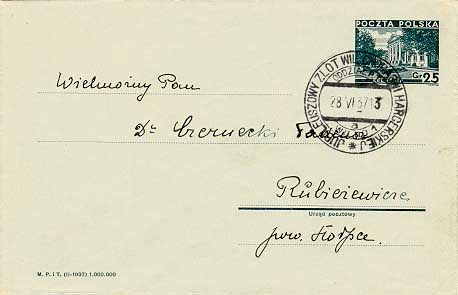 POCZTA POLSKA
Gr 25
JUBILEUSZOWY ZLOT WILEŃSKIEJ CHORĄGWI HARCERSKIEJ
28 VI 37 13
a
Wielmożny Pan
Dr Czernecki Tadeusz
Rubieżewicze
Urząd pocztowy
pow. Stołpce.
M. P. i T. (II-1937) 1.000.000